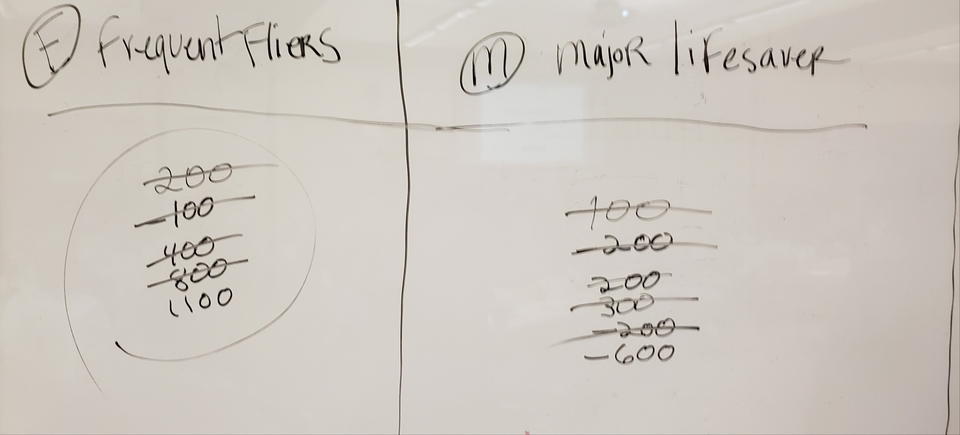 F Frequent Fliers
200
-100
400
800
1100
M Major lifesaver
100
-200
200
300
-200
-600